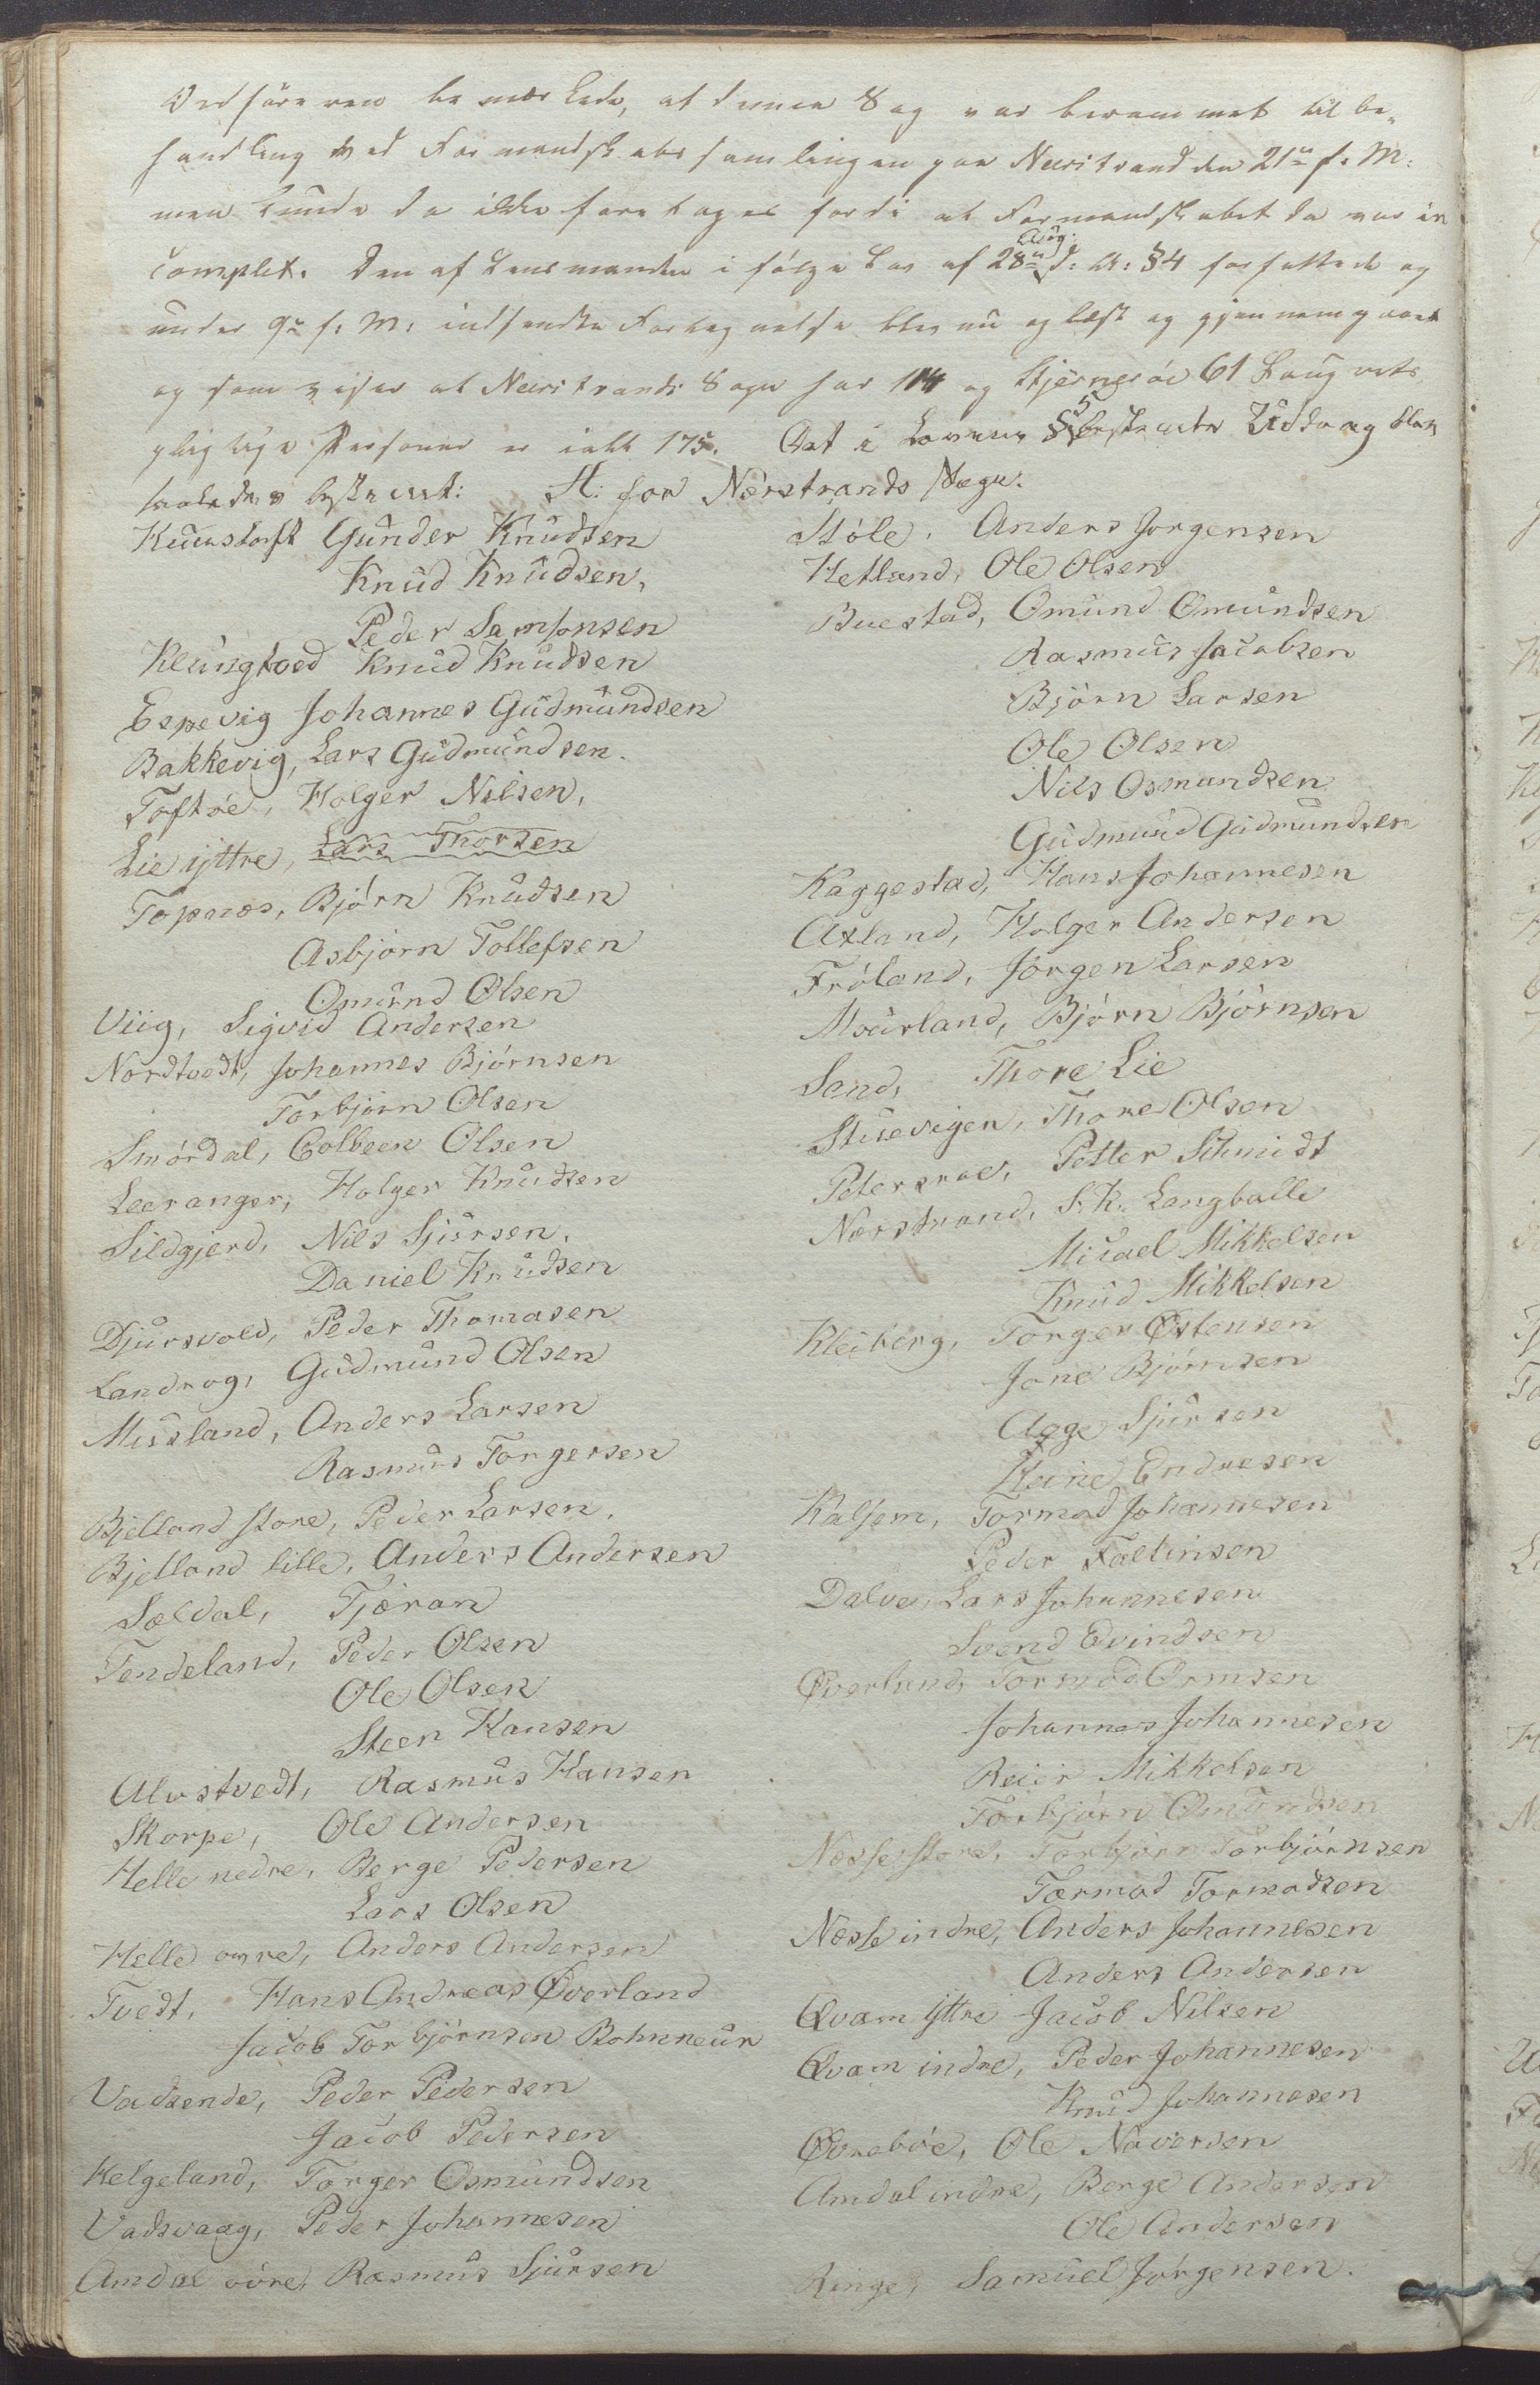 Ordføreren bemærkede, at denne Sag var berammet til be„
handling ved Formandskabssamlingen paa Neerstrand den 21de f. M:
men kunde da ikke foretages fordi at Formandskabet da var in
complet. Den af Lensmanden i følge Lov af 28de Aug: d: A: §4 forfattede og
under 9de f: M: indsendte Fortegnelse blev nu oplæst og gjennemgaaet
og som viser at Neerstrands Sogn har 114 og Hjernerøe 61 Laugrets
pligtige Personer er ialt 175. Det i Lovens § 5 bestemte Udtog blev
saaledes bestemt: A: for Nerstrands Sogn.
Gunder Knudsen
Knud Knudsen,
Peder Samsonsen
Klungtved Knud Knudsen
Espevig Johannes Gudmundsen
Bakkevig, Lars Gudmundsen.
Toftøe, Holger Nilsen,
Lie ijttre, Lars Thorsen
Topnæs, Bjørn Knudsen
Asbjørn Tollefsen
Omund Olsen
Viig, Sigvid Andersen
Nordtvedt, Johannes Bjørnsen
Torbjørn Olsen
Smørdal, Colbeen Olsen
Leeranger, Holger Knudsen
Sildgjerd, Nils Sjursen.
Daniel Knudsen
Djursvold, Peder Thomasen
Landrog, Gudmund Olsen
Musland, Anders Larsen
Rasmus Torgersen
Bjelland store, Peder Larsen.
Bjelland lille, Anders Andersen
Sældal, Tjæran
Tendeland, Peder Olsen
Ole Olsen
Steen Hansen
Alvstvedt, Rasmus Hansen
Skorpe, Ole Andersen
Helle nedre, Berge Pedersen
Lars Olsen
Helle øvre, Anders Andersen
Tvedt, Hans Andreas Øverland
Jacob Torbjørnsen Bohnneur
Vadsende, Peder Pedersen
Jacob Pedersen
Helgeland, Torger Osmundsen
Vadsvaag, Peder Johannesen
Amdal øvre, Rasmus Sjursen
Støle. Anders Jørgensen
Hetland, Ole Olsen
Buestad, Omund Omundsen
Rasmus Jacobsen
Bjørn Larsen
Ole Olsen
Nils Osmundsen
Gudmund Gudmundsen
Kaggestad, Hans Johannesen
Axland, Holger Andersen
Frøland, Jørgen Larsen
Mourland, Bjørn Bjørnsen
Sand, Thore Lie
Stuevigen, Thore Olsen
Petersroe, Petter Schmidt
Nerstrand, S. K. Langballe
Micael Mikkelsen
Knud Mikkelsen
Kleiberg, Torger Østensen
Jone Bjørnsen
Aage Sjursen
Endresen
Kalsem, Tormod Johannesen
Peder Fæltinsen
Dalve, Lars Johannesen
Svend Evindsen
Øverland, Tormod Ormsen
Johannes Johannesen
Reier Mikkelsen
Torbjørn Omundsen
Næsse store, Torbjørn Torbjørnsen
Tormod Tormodsen
Næsse indre, Anders Johannesen
Anders Andersen
Qvam ijttre Jacob Nilsen
Qvam indre, Peder Johannesen
Knud Johannesen
Øvrebøe, Ole Naversen
Amdal indre, Berge Andersen
Ole Andersen
Ringe, Samuel Jørgensen.